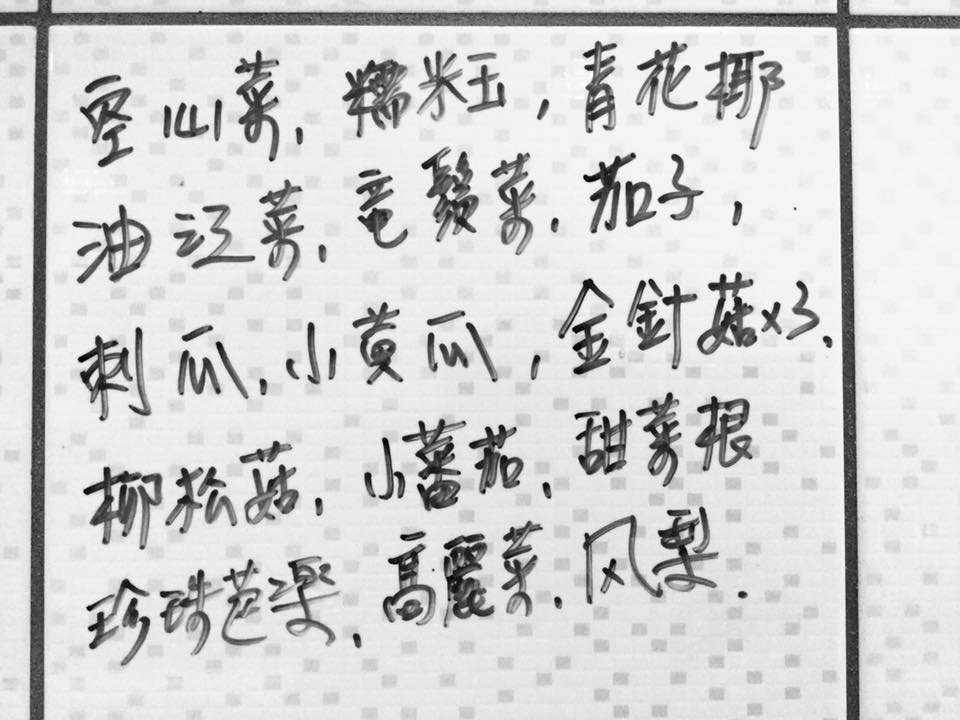 空心菜,糯米玉,青花椰
油江菜,竜鬚菜,茄子,
刺瓜,小黄瓜,金針菇x3,
柳松菇,小蕃茄,甜菜根
珍珠芭樂,高麗菜,风梨.